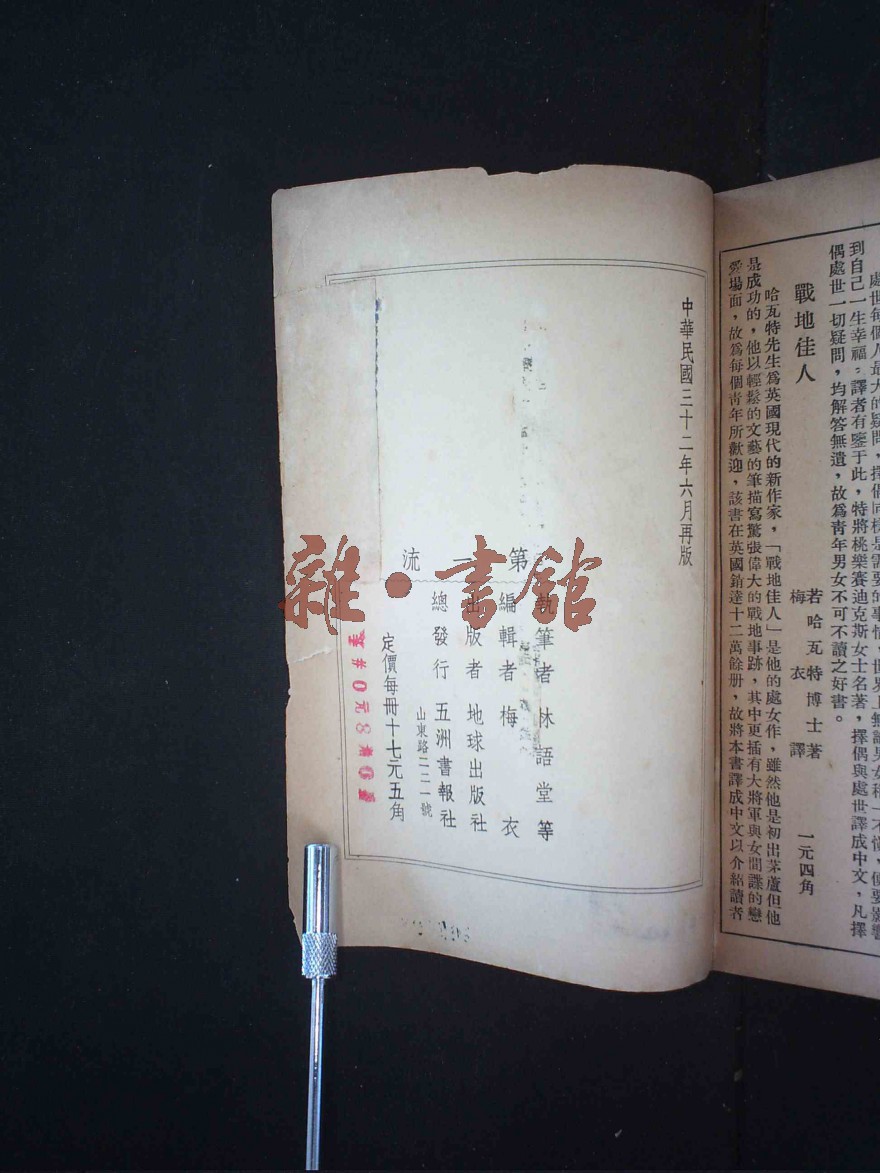 處世每個人最大的疑問，擇偶同樣是需要的事情，世界上無論男女稚一不懂，便要影響
到自己一生幸福。譯者有鑒于此，特將桃樂賽迪克斯女士名著，擇偶與處世譯成中文，凡擇
偶處世一切疑問，均解答無遺，故爲靑年男女不可不讀之好書。
戰地佳人
若哈瓦特博士著
梅衣譯
一元四角
哈瓦特先生爲英國現代的新作家，「戰地佳人」是他的處女作，雖然他是初出茅蘆但他
是成功的，他以輕鬆的文藝的筆描寫驚張偉大的戰地事跡，其中更插有大將軍與女間諜的戀
愛場面，故爲每個靑年所歡迎，該書在英國銷達十二萬餘册，故將本書譯成中文以介紹讀者
中華民國三十二年六月再版
第一流
執筆者 林語堂等
編輯者 梅衣
出版者 地球出版社
總發行 五洲書報社
山東路二二一號
定價每冊十七元五角
雜·書館